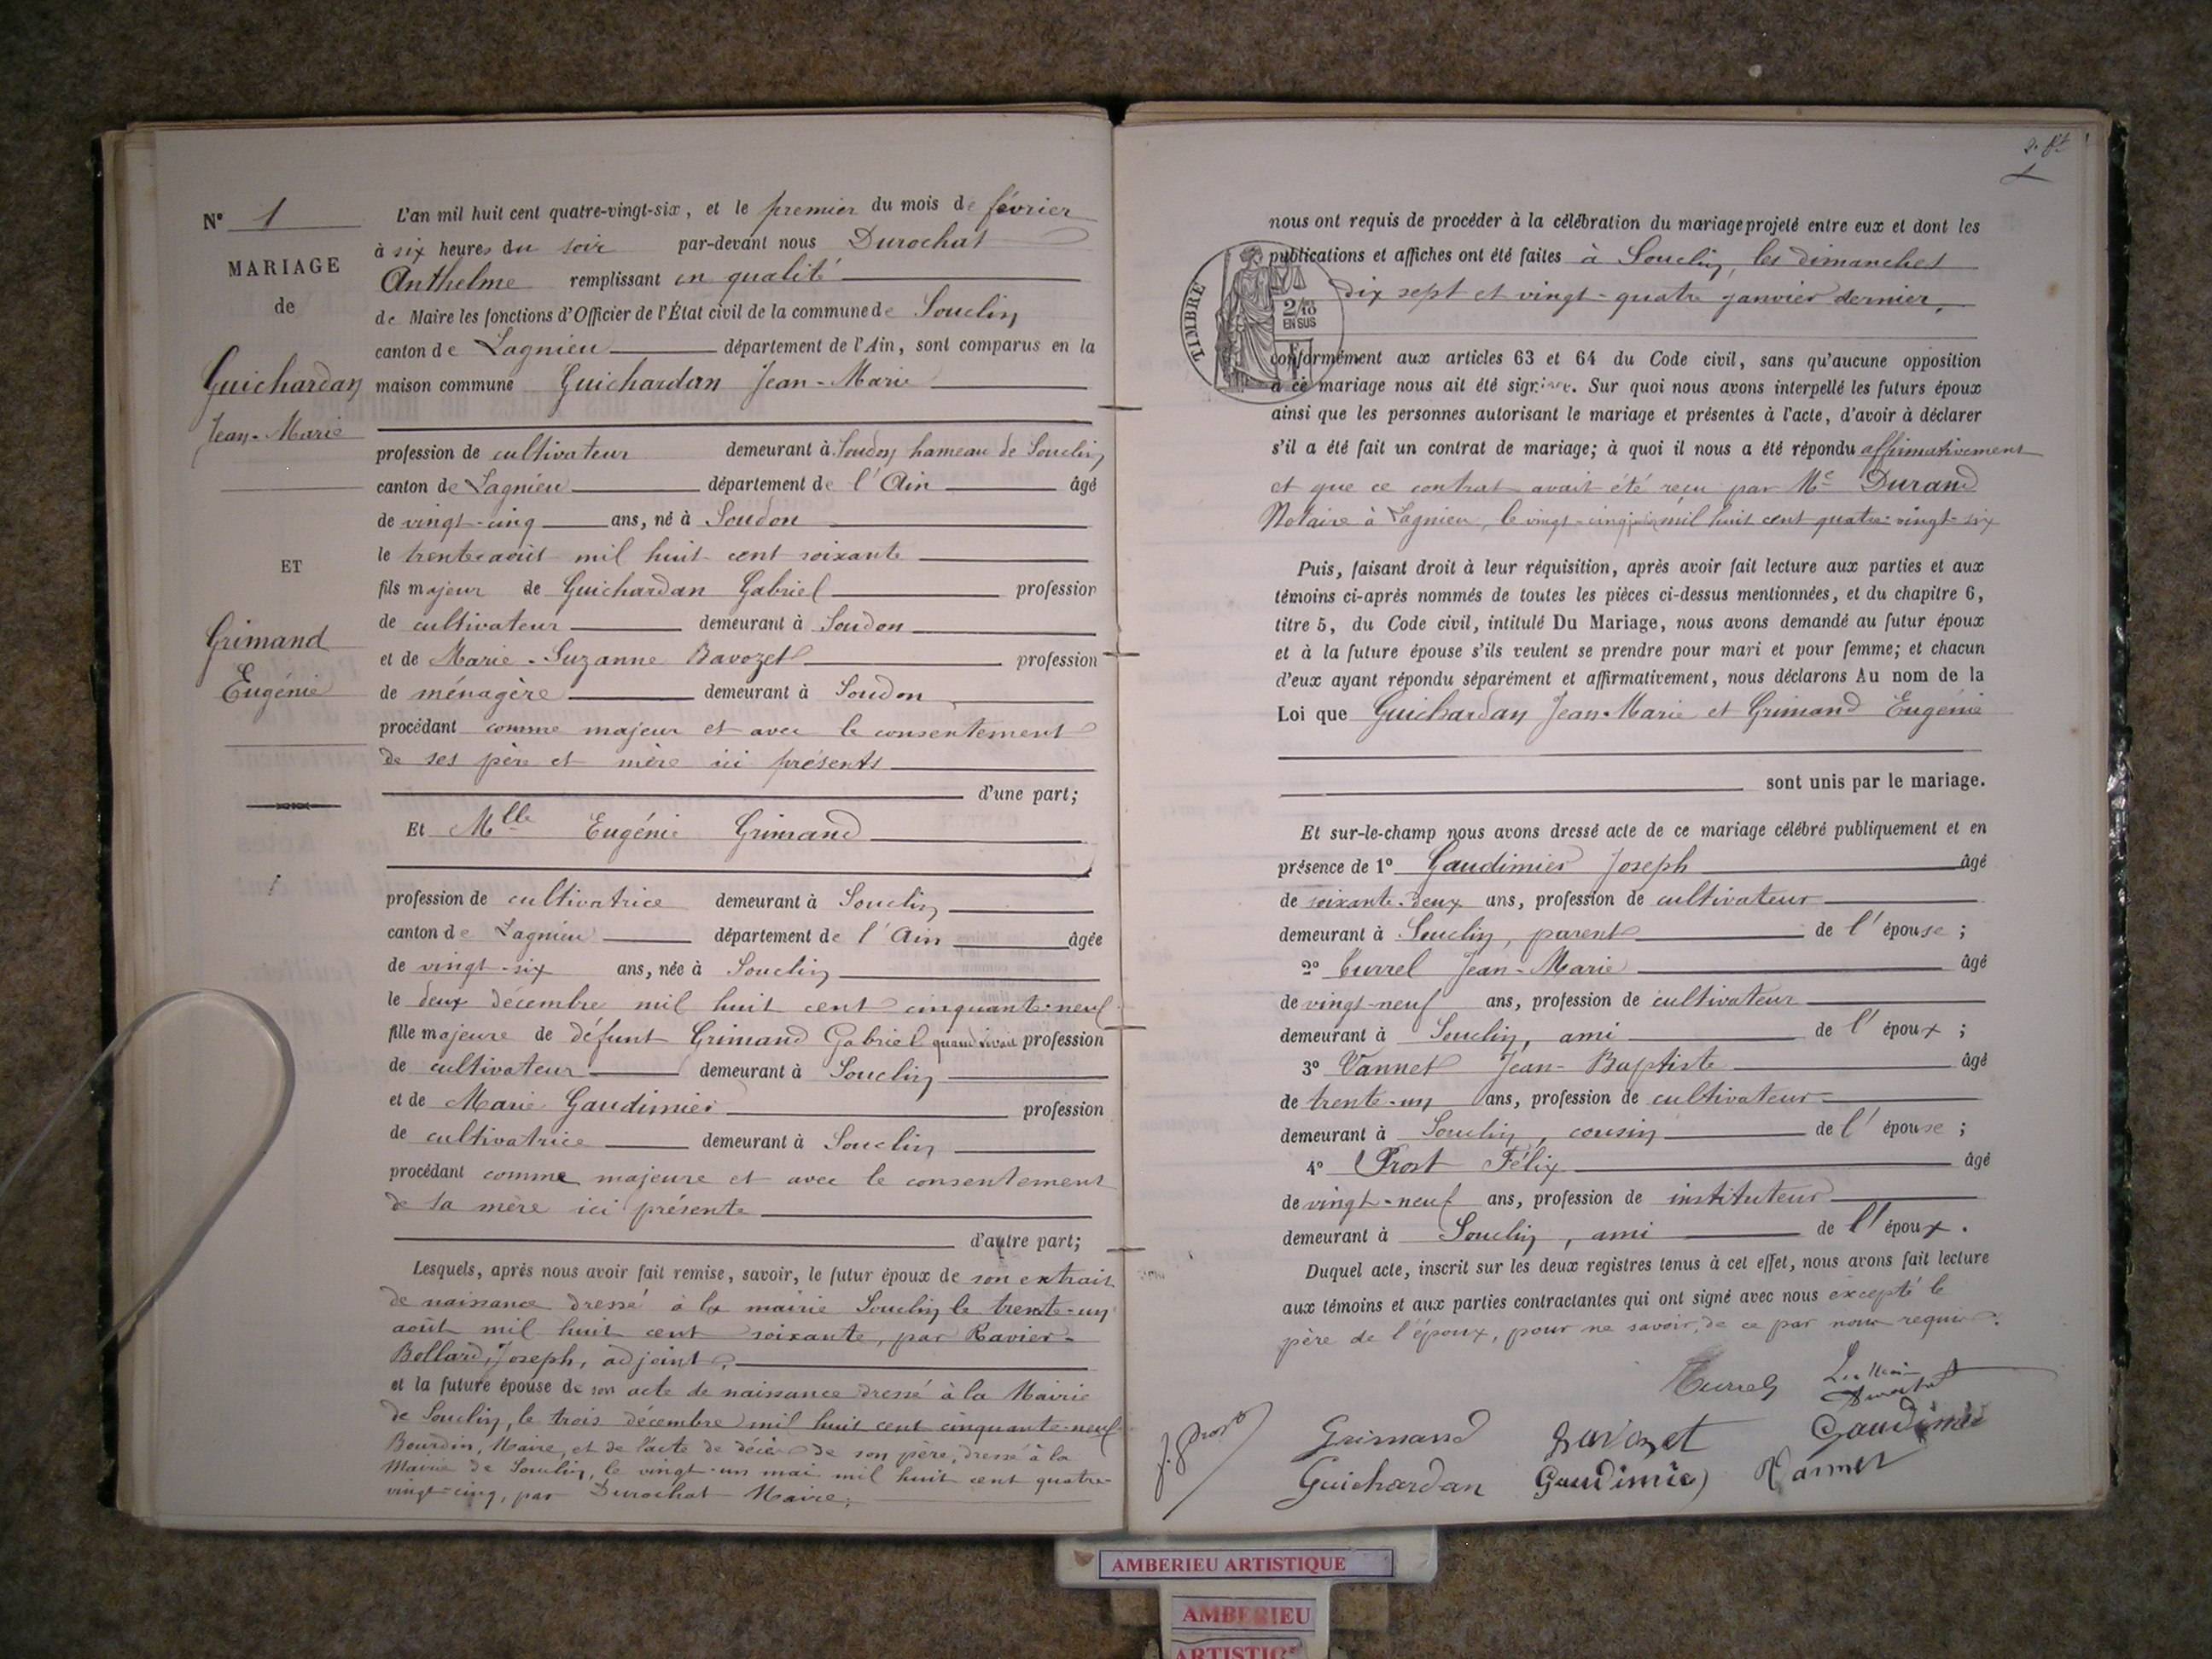 N° 1
MARIAGE
de
Guichardan
Jean-Marie
ET
Grimand
Eugénie
L'an mil huit cent quatre-vingt-six, et le premier du mois de février
à six heures du soir par-devant nous Durochat
Anthelme remplissant en qualité
de Maire les fonctions d'Officier de l'État civil de la commune de Souclin
canton de Lagnieu département de l'Ain, sont comparus en la
maison commune Guichardan Jean-Marie
profession de cultivateur demeurant à Soudon hameau de Souclin
canton de Lagnieu département de l'Ain âgé
de vingt-cinq ans, né à Soudon
le trente août mil huit cent soixante
fils majeur de Guichardan Gabriel profession
de cultivateur demeurant à Soudon
et de Marie-Suzanne Bavozet profession
de ménagère demeurant à Soudon
procédant comme majeur et avec le consentement
de ses père et mère ici présents
d'une part;
Et Mlle Eugénie Grimand
profession de cultivatrice demeurant à Souclin
canton de Lagnieu département de l'Ain âgée
de vingt-six ans, née à Souclin
le deux décembre mil huit cent cinquante-neuf
fille majeure de défunt Grimand Gabriel quand vivait profession
de cultivateur demeurant à Souclin
et de Marie Gaudimier profession
de cultivatrice demeurant à Souclin
procédant comme majeure et avec le consentement
de sa mère ici présente
d'autre part;
Lesquels, après nous avoir fait remise, savoir, le futur époux de son extrait
de naissance dressé à la mairie Souclin le trente-un
août mil huit cent soixante, par Ravier-
Bollard, Joseph, adjoint,
et la future épouse de son acte de naissance dressé à la Mairie
de Souclin, le trois décembre mil huit cent cinquante-neuf
Bourdin, Maire, et de l'acte de décès de son père, dressé à la
Mairie de Souclin, le vingt-un mai mil huit cent quatre-
vingt-cinq, par Durochat Maire;
TIMBRE
2/10
EN SUS
nous ont requis de procéder à la célébration du mariage projeté entre eux et dont les
publications et affiches ont été faites à Souclin, les dimanches
dix sept et vingt-quatre janvier dernier,
conformément aux articles 63 et 64 du Code civil, sans qu'aucune opposition
à ce mariage nous ait été signifiée. Sur quoi nous avons interpellé les futurs époux
ainsi que les personnes autorisant le mariage et présentes à l'acte, d'avoir à déclarer
s'il a été fait un contrat de mariage; à quoi il nous a été répondu affirmativement
et que ce contrat avait été reçu par Me Durand
Notaire à Lagnieu, le vingt-cinq mil huit cent quatre-vingt-six
Puis, faisant droit à leur réquisition, après avoir fait lecture aux parties et aux
témoins ci-après nommés de toutes les pièces ci-dessus mentionnées, et du chapitre 6,
titre 5, du Code civil, intitulé Du Mariage, nous avons demandé au futur époux
et à la future épouse s'ils veulent se prendre pour mari et pour femme; et chacun
d'eux ayant répondu séparément et affirmativement, nous déclarons Au nom de la
Loi que Guichardan Jean-Marie et Grimand Eugénie
sont unis par le mariage.
Et sur-le-champ nous avons dressé acte de ce mariage célébré publiquement et en
présence de 1° Gaudimier Joseph âgé
de soixante-deux ans, profession de cultivateur
demeurant à Souclin, parent de l'épouse;
2° Jean-Marie âgé
de vingt-neuf ans, profession de cultivateur
demeurant à Souclin, ami de l'époux;
3° Vannet Jean-Baptiste âgé
de trente-un ans, profession de cultivateur
demeurant à Souclin, cousin de l'épouse;
4° Prost Félix âgé
de vingt-neuf ans, profession de instituteur
demeurant à Souclin, ami de l'époux.
Duquel acte, inscrit sur les deux registres tenus à cet effet, nous avons fait lecture
aux témoins et aux parties contractantes qui ont signé avec nous excepté le
père de l'époux, pour ne savoir, de ce par nous requis.
Grimand Bavozet Gaudimier
Guichardan Gaudimier Vannet
AMBERIEU ARTISTIQUE
AMBERIEU